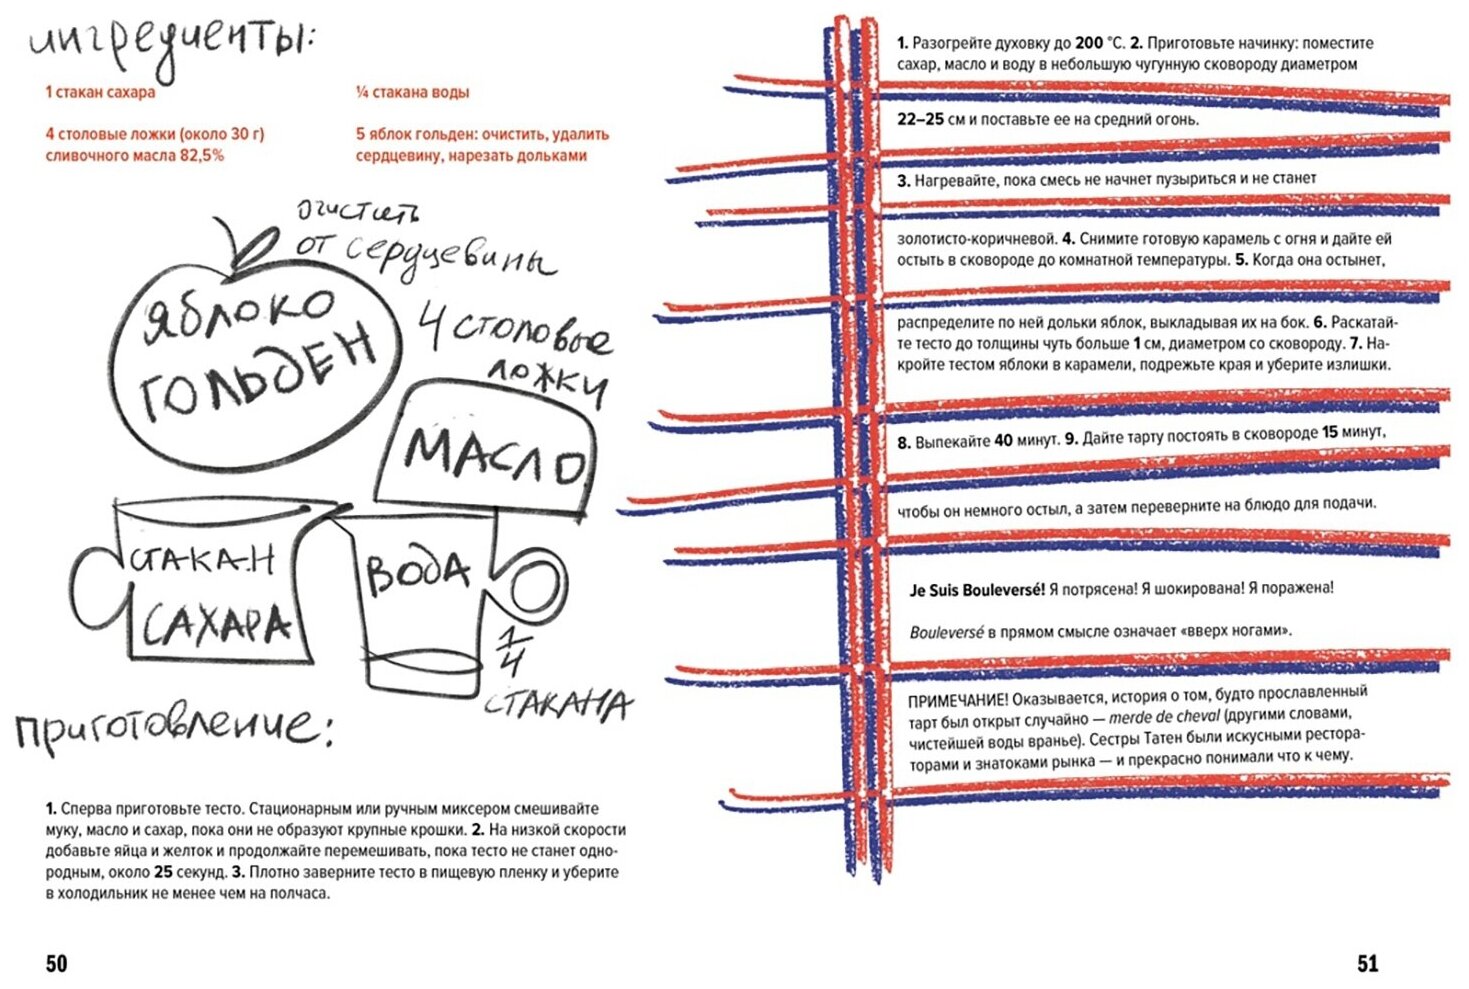 ингредиенты:
1 стакан сахара
¼ стакана воды
4 столовые ложки (около 30 г)
сливочного масла 82,5%
5 яблок гольден: очистить, удалить
сердцевину, нарезать дольками
очистить
от сердцевины
яблоко
гольден
4 столовые
ложки
масло
стакан
сахара
вода
1/4
стакана
приготовление:
1. Сперва приготовьте тесто. Стационарным или ручным миксером смешивайте
муку, масло и сахар, пока они не образуют крупные крошки. 2. На низкой скорости
добавьте яйца и желток и продолжайте перемешивать, пока тесто не станет одно-
родным, около 25 секунд. 3. Плотно заверните тесто в пищевую пленку и уберите
в холодильник не менее чем на полчаса.
50
1. Разогрейте духовку до 200 °C. 2. Приготовьте начинку: поместите
сахар, масло и воду в небольшую чугунную сковороду диаметром
22–25 см и поставьте ее на средний огонь.
3. Нагревайте, пока смесь не начнет пузыриться и не станет
золотисто-коричневой. 4. Снимите готовую карамель с огня и дайте ей
остыть в сковороде до комнатной температуры. 5. Когда она остынет,
распределите по ней дольки яблок, выкладывая их на бок. 6. Раскатай-
те тесто до толщины чуть больше 1 см, диаметром со сковороду. 7. На-
кройте тестом яблоки в карамели, подрежьте края и уберите излишки.
8. Выпекайте 40 минут. 9. Дайте тарту постоять в сковороде 15 минут,
чтобы он немного остыл, а затем переверните на блюдо для подачи.
Je Suis Bouleversé! Я потрясена! Я шокирована! Я поражена!
Bouleversé в прямом смысле означает «вверх ногами».
ПРИМЕЧАНИЕ! Оказывается, история о том, будто прославленный
тарт был открыт случайно — merde de cheval (другими словами,
чистейшей воды вранье). Сестры Татен были искусными рестор-
торами и знатоками рынка — и прекрасно понимали что к чему.
51